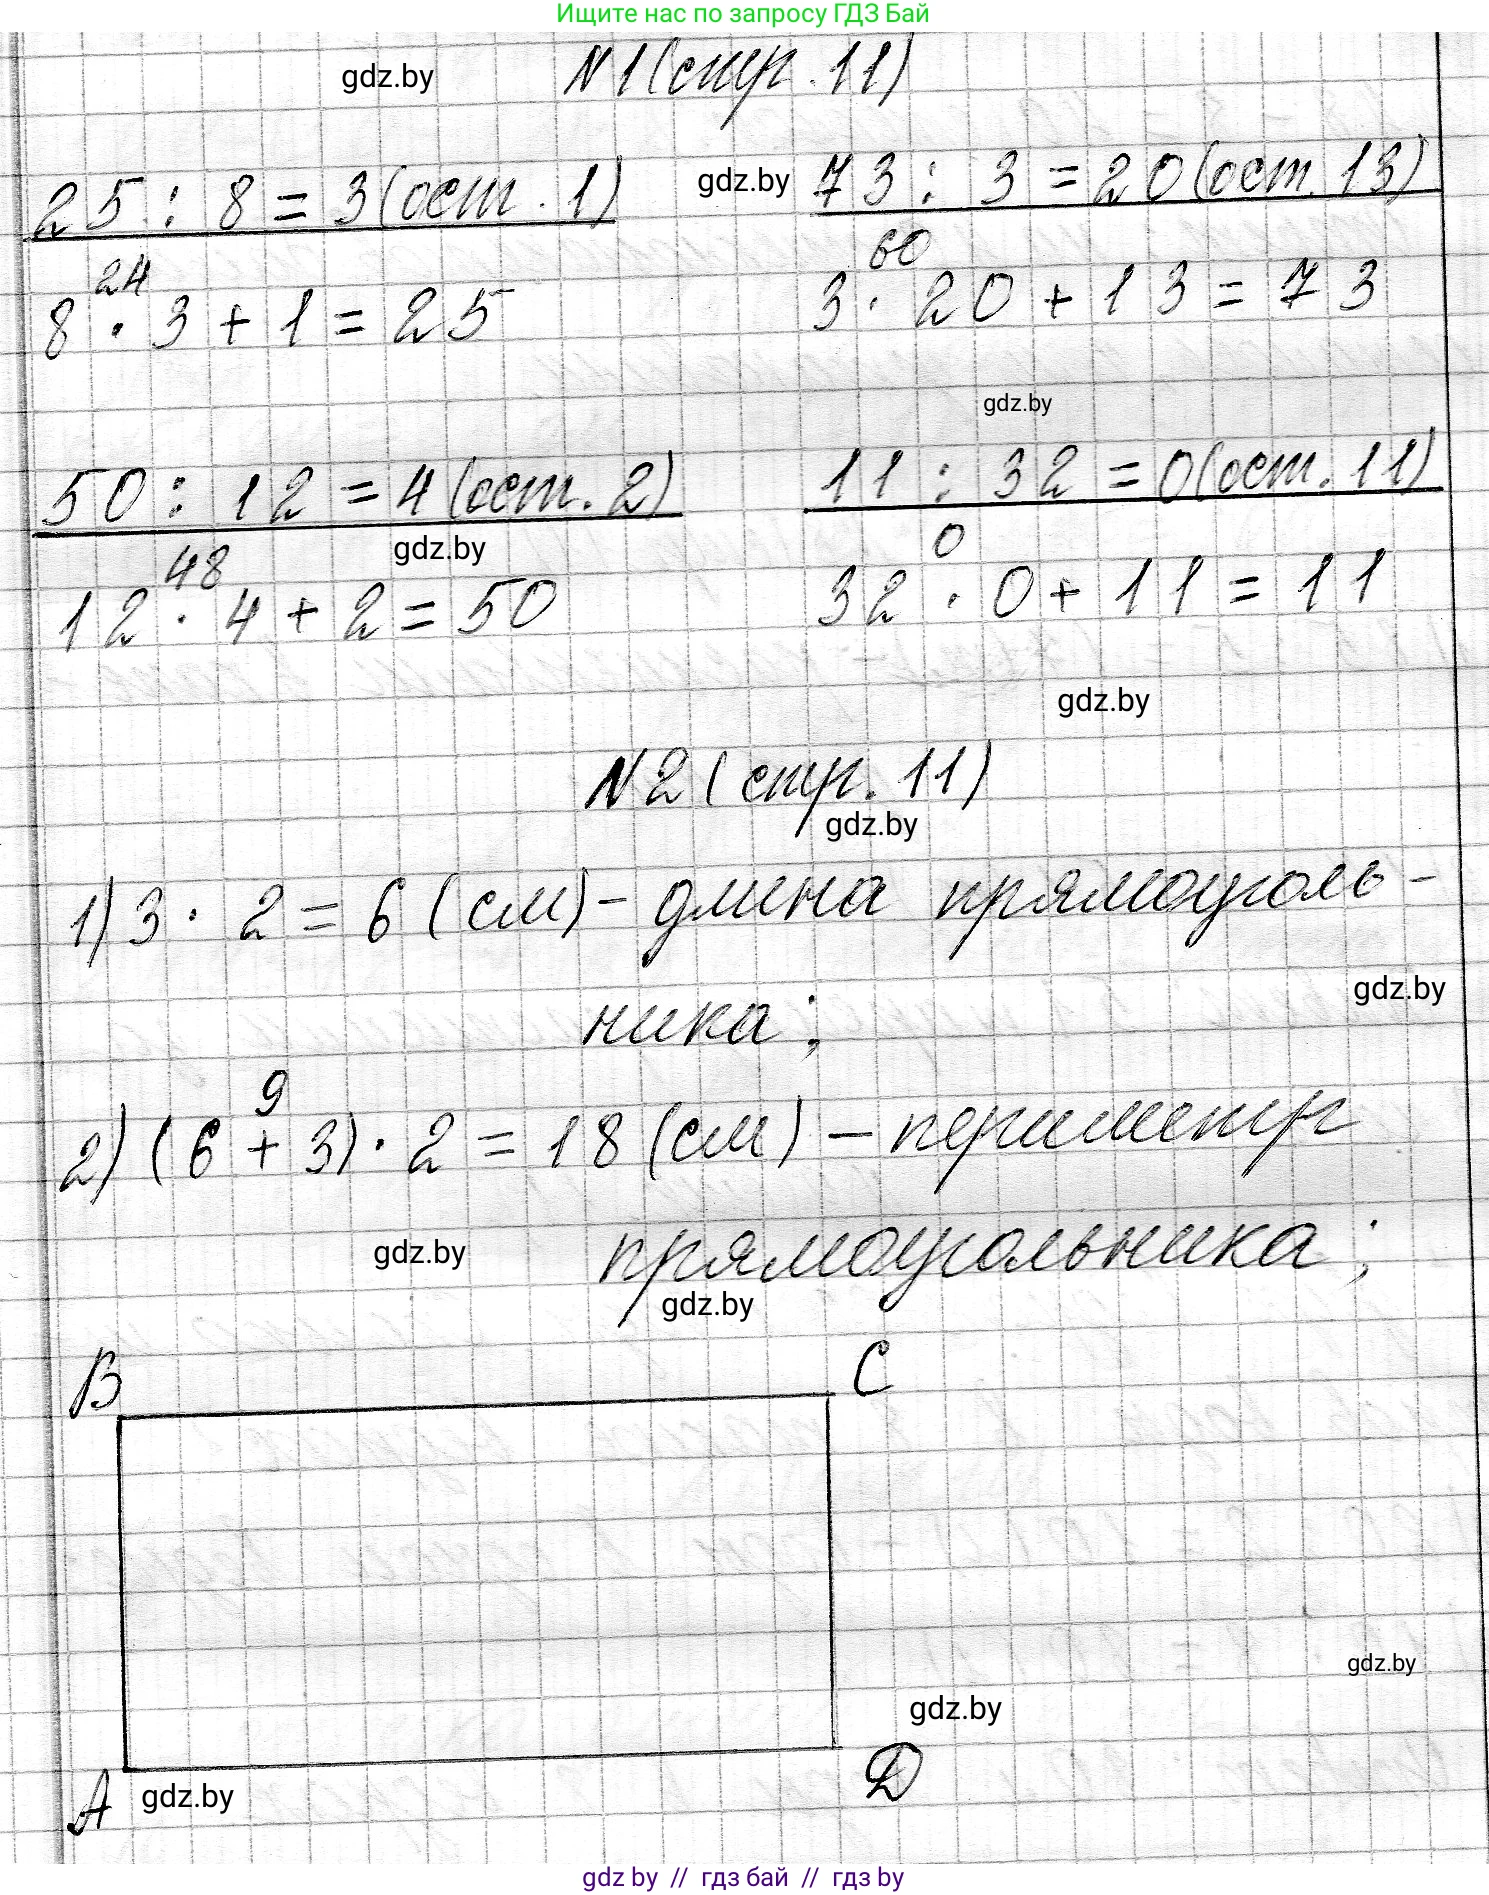 Ищите нас по запросу ГДЗ Бай
N1 (стр. 11)
gdz.by
25 : 8 = 3 (ост. 1)
24
8 · 3 + 1 = 25
gdz.by
73 : 3 = 20 (ост. 13)
60
3 · 20 + 13 = 73
gdz.by
50 : 12 = 4 (ост. 2)
48
gdz.by
12 · 4 + 2 = 50
11 : 32 = 0 (ост. 11)
0
32 · 0 + 11 = 11
gdz.by
N2 (стр. 11)
gdz.by
1) 3 · 2 = 6 (см) - длина прямоуголь-
gdz.by
ника;
9
2) (6 + 3) · 2 = 18 (см) - периметр
gdz.by
прямоугольника;
gdz.by
B
C
gdz.by
gdz.by
A
D
gdz.by
gdz.by // гдз бай // гдз by